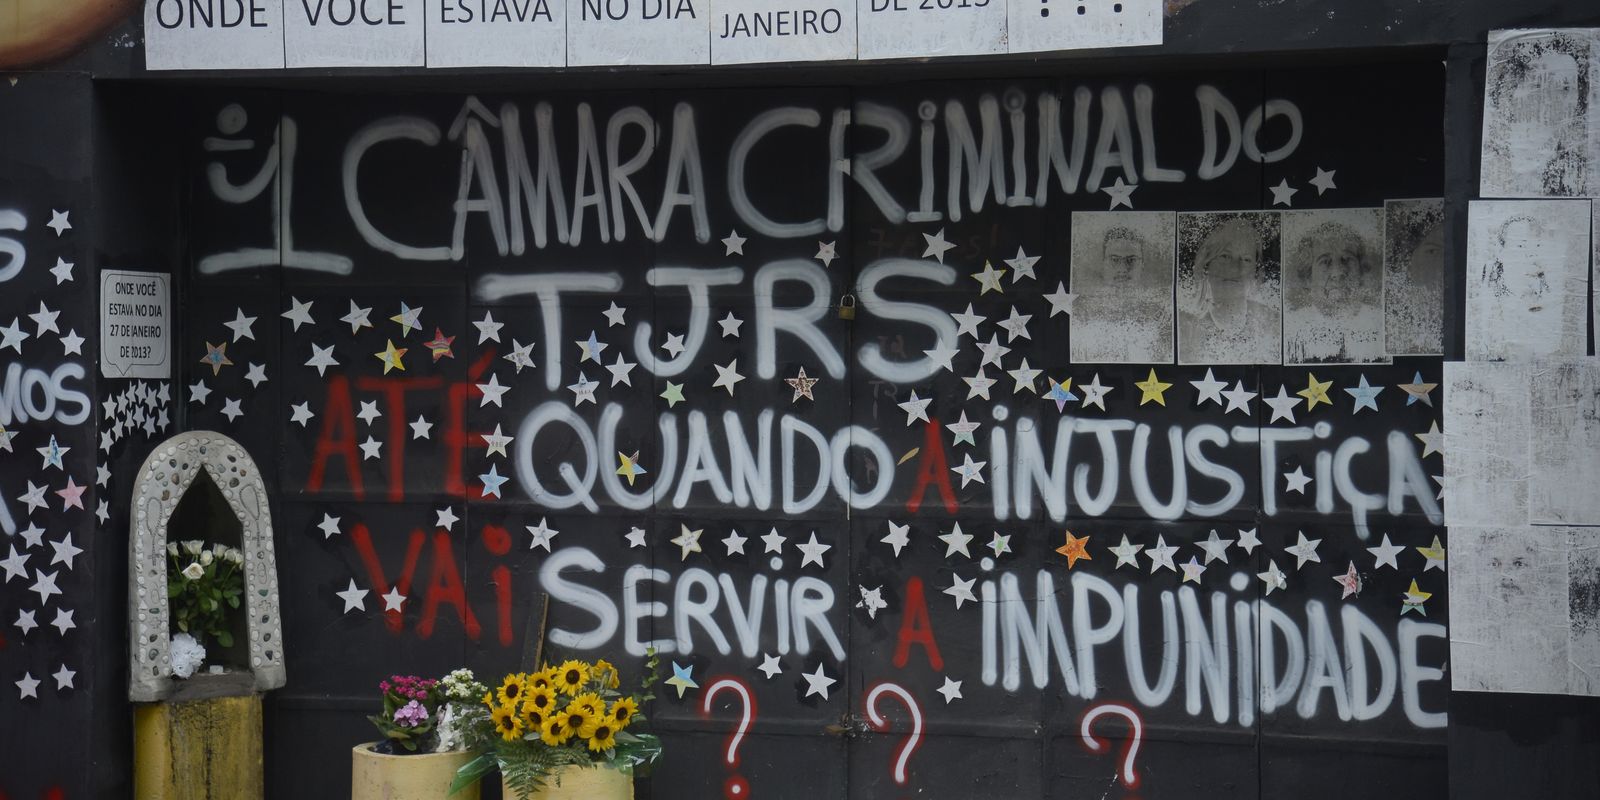 ONDE VOCÊ ESTAVA NO DIA JANEIRO DE 2013 ???
1ª CÂMARA CRIMINAL DO
TJRS
ATÉ QUANDO A INJUSTIÇA
VAI SERVIR A IMPUNIDADE
???
ONDE VOCÊ
ESTAVA NO DIA
27 DE JANEIRO
DE 2013?
S
MOS